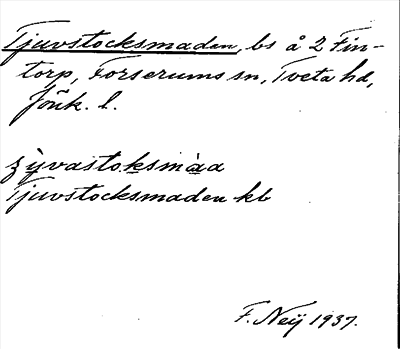 Tjuvstocksmaden, bs å 2 Fin-
torp, Forserums sn, Tveta hd,
Jönk. l.
ʒy̆vastoksmàa
Tjuvstocksmaden kb
F. Neij 1937.